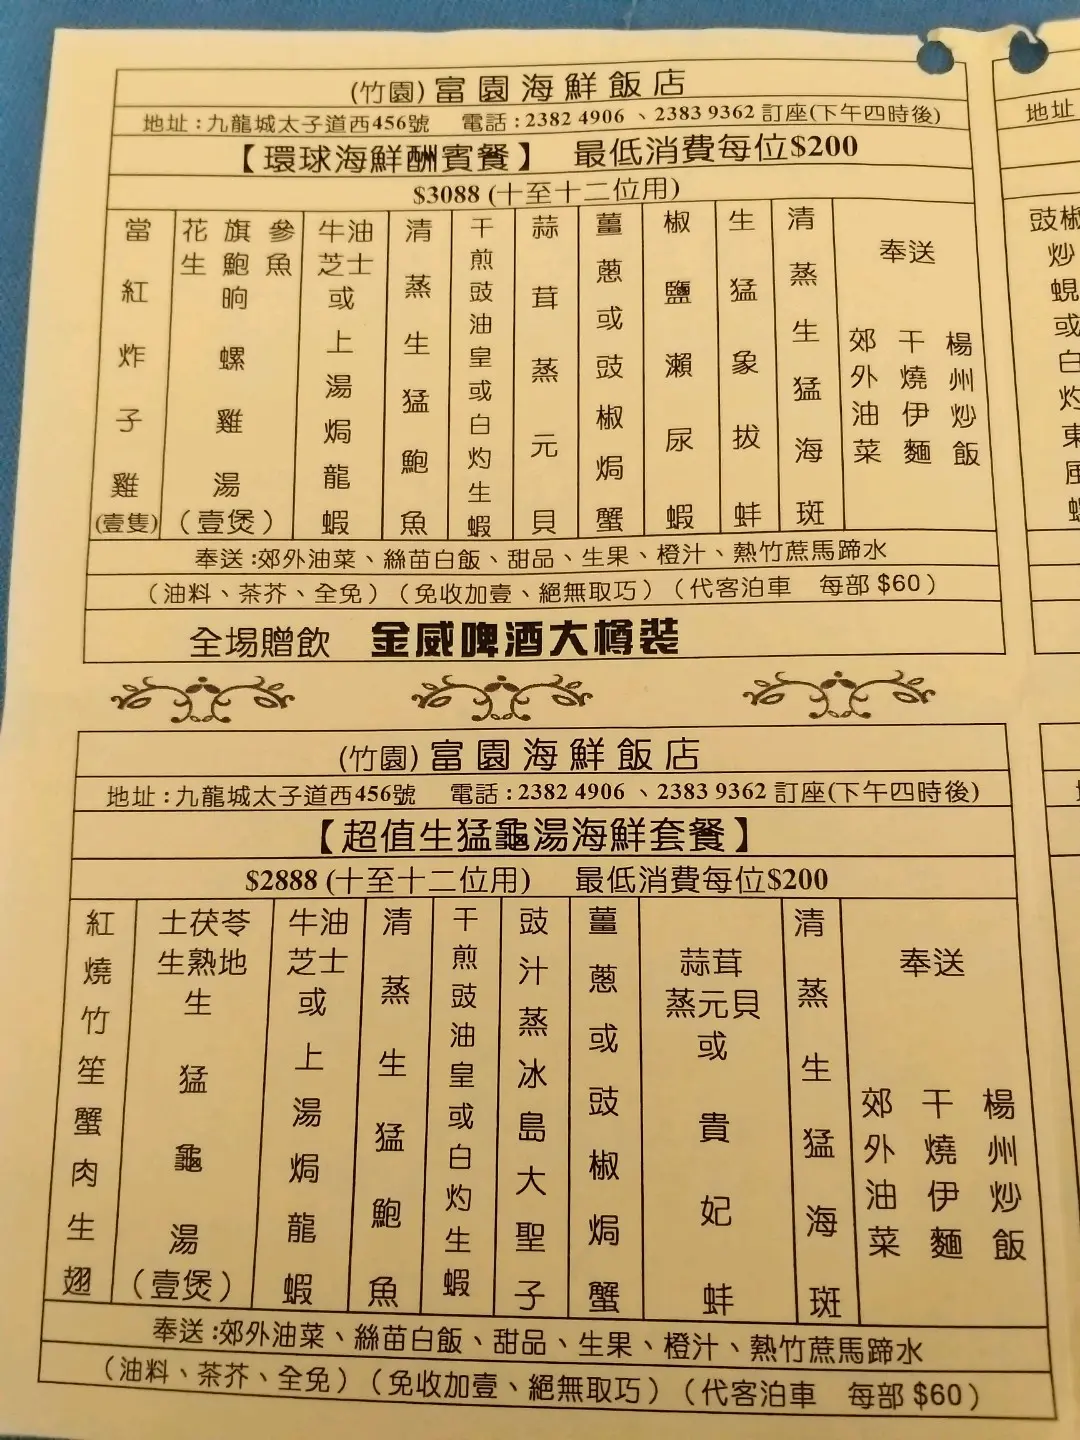 (竹園) 富園海鮮飯店
地址:九龍城太子道西456號 電話:2382 4906、2383 9362 訂座(下午四時後)
【環球海鮮酬賓餐】 最低消費每位$200
$3088 (十至十二位用)
當紅炸子雞(壹隻)
花旗參
生鮑魚
晌螺雞湯
(壹煲)
牛油
芝士
或上湯焗龍蝦
清蒸生猛鮑魚
干煎豉油皇或白灼生蝦
蒜茸蒸元貝
薑蔥或豉椒焗蟹
椒鹽瀨尿蝦
生猛象拔蚌
清蒸生猛海斑
奉送
郊外油菜
干燒伊麵
楊州炒飯
奉送:郊外油菜、絲苗白飯、甜品、生果、橙汁、熱竹蔗馬蹄水
(油料、茶芥、全免)(免收加壹、絕無取巧)(代客泊車 每部 $60)
全場贈飲 金威啤酒大樽裝
(竹園) 富園海鮮飯店
地址:九龍城太子道西456號 電話:2382 4906、2383 9362 訂座(下午四時後)
【超值生猛龜湯海鮮套餐】
$2888 (十至十二位用) 最低消費每位$200
紅燒竹笙蟹肉生翅
土茯苓
生熟地
生猛龜湯
(壹煲)
牛油
芝士
或上湯焗龍蝦
清蒸生猛鮑魚
干煎豉油皇或白灼生蝦
豉汁蒸冰島大聖子
薑蔥或豉椒焗蟹
蒜茸
蒸元貝
或貴妃蚌
清蒸生猛海斑
奉送
郊外油菜
干燒伊麵
楊州炒飯
奉送:郊外油菜、絲苗白飯、甜品、生果、橙汁、熱竹蔗馬蹄水
(油料、茶芥、全免)(免收加壹、絕無取巧)(代客泊車 每部 $60)
地址
豉椒
炒蜆或白灼東風螺